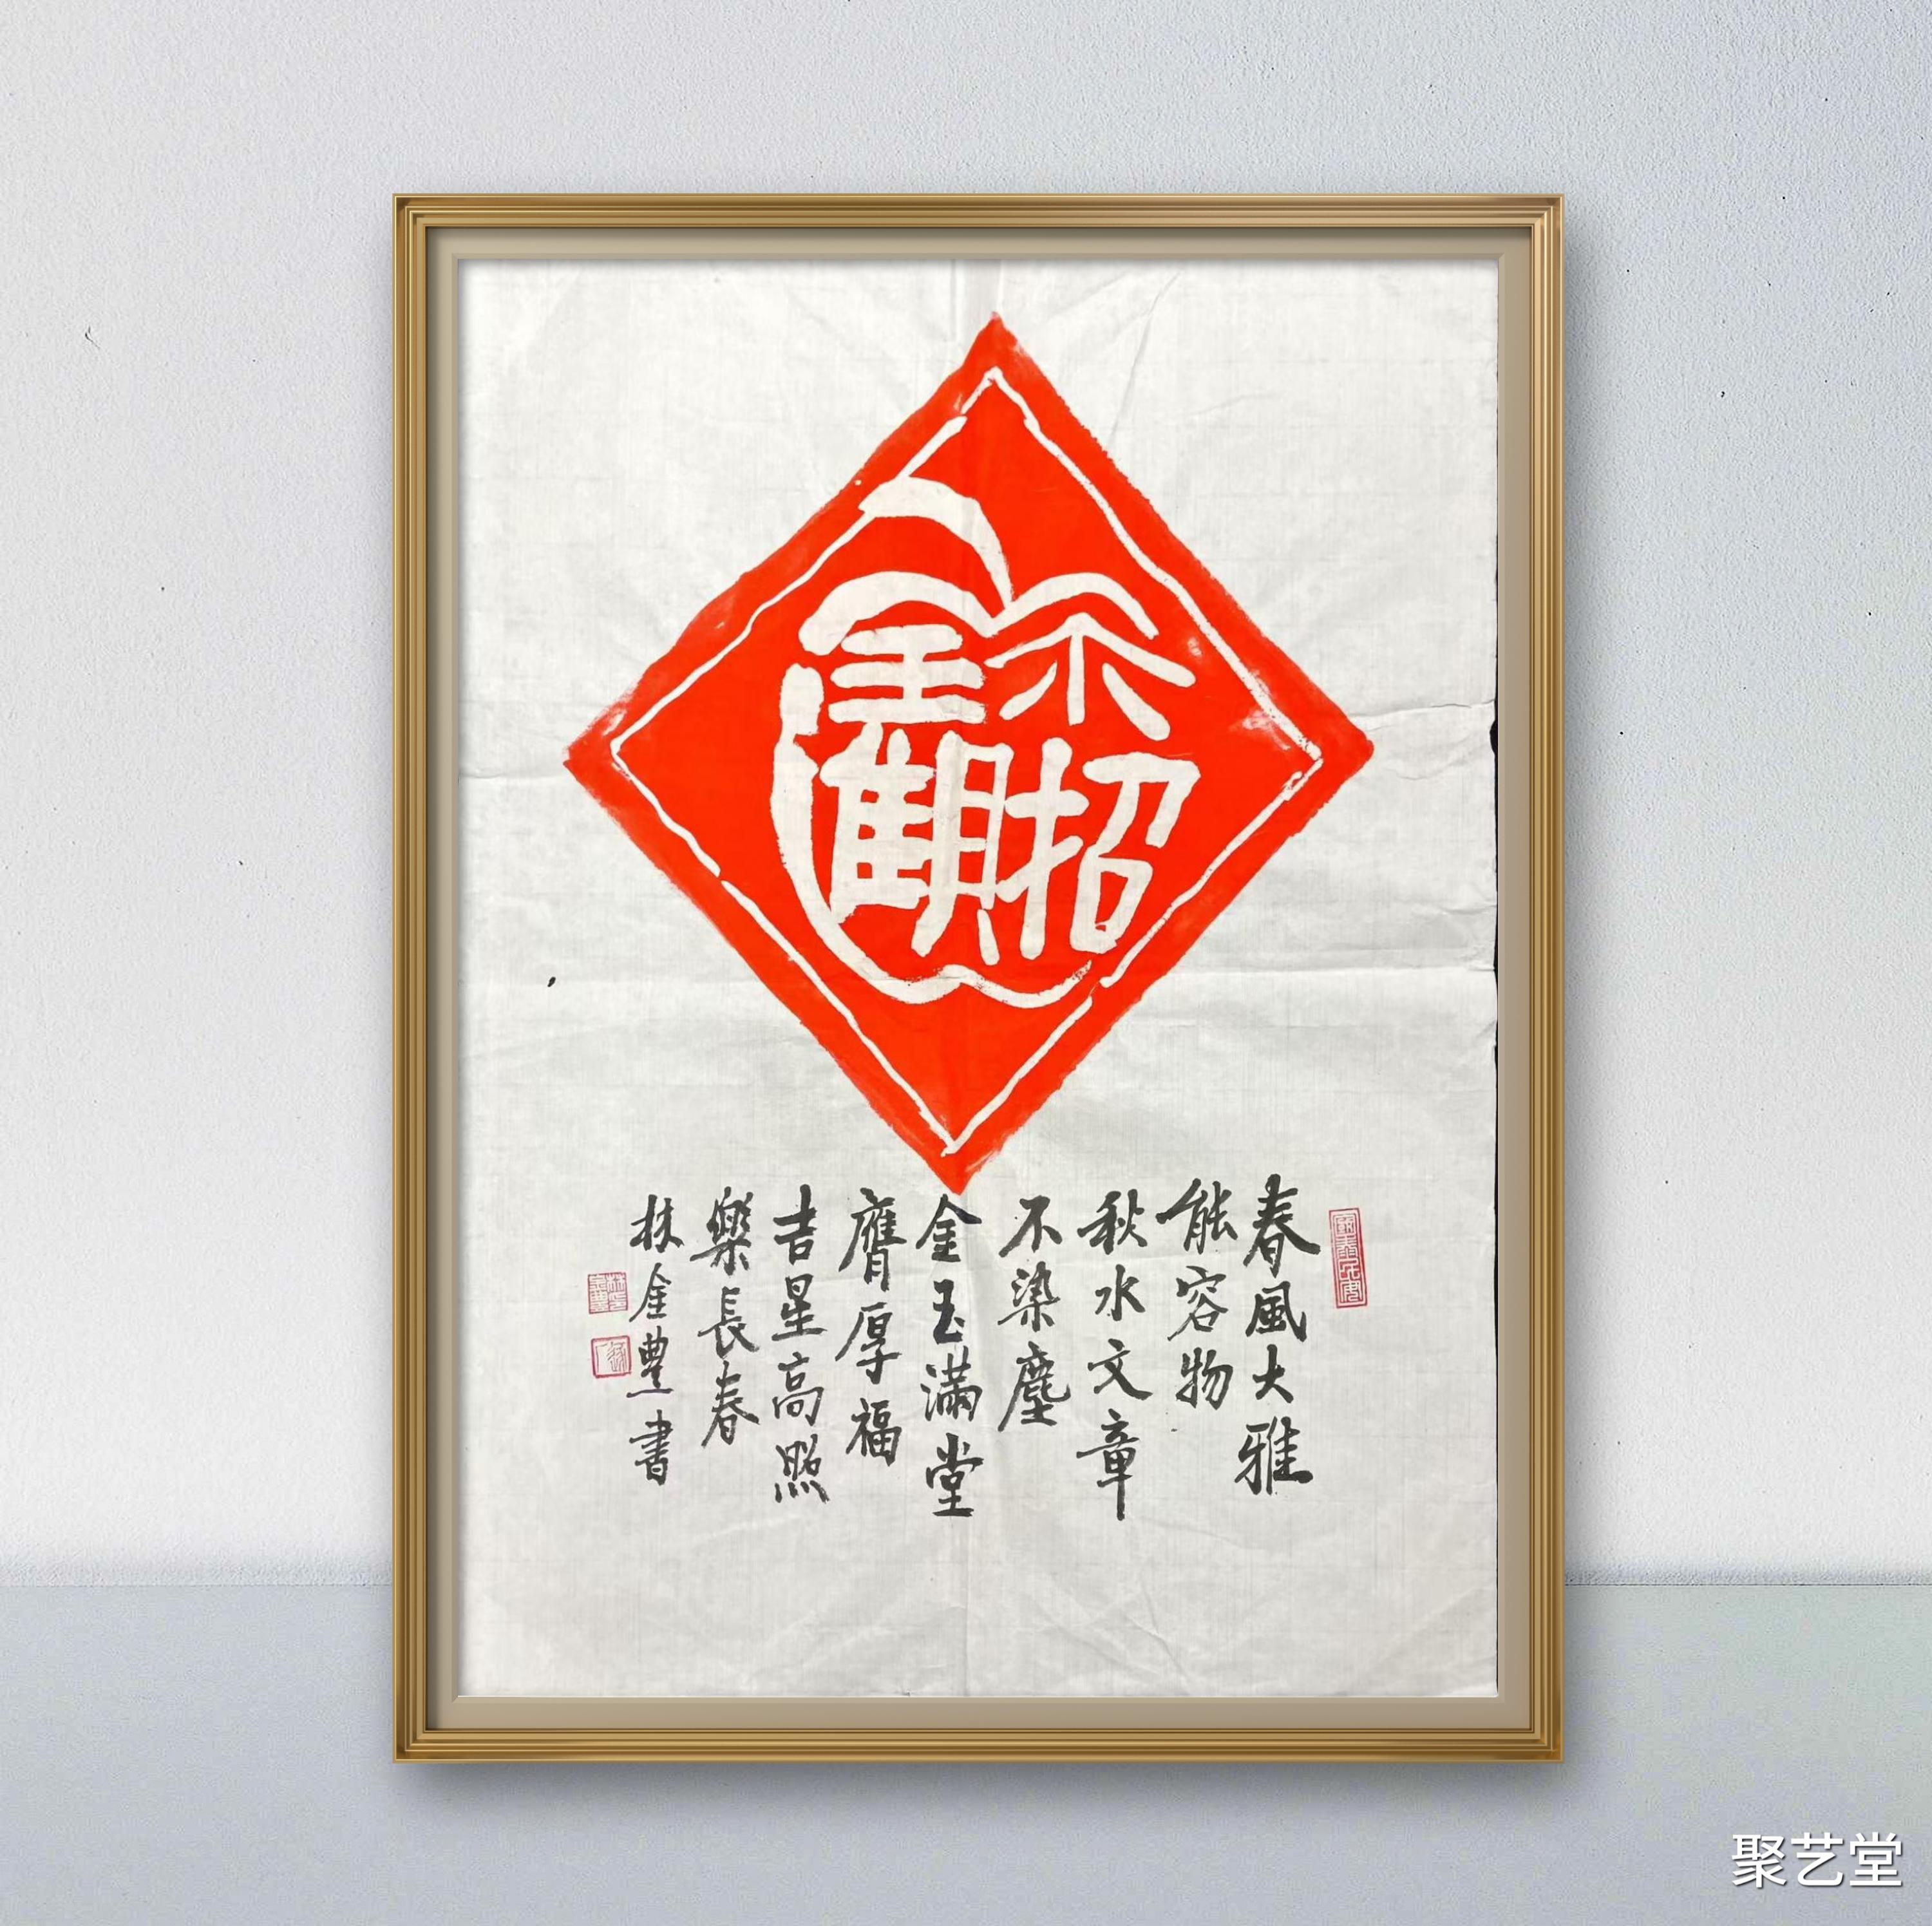 招財進寶
國泰民安
春風大雅
能容物
秋水文章
不染塵
金玉滿堂
膺厚福
吉星高照
樂長春
林金豊書
聚艺堂